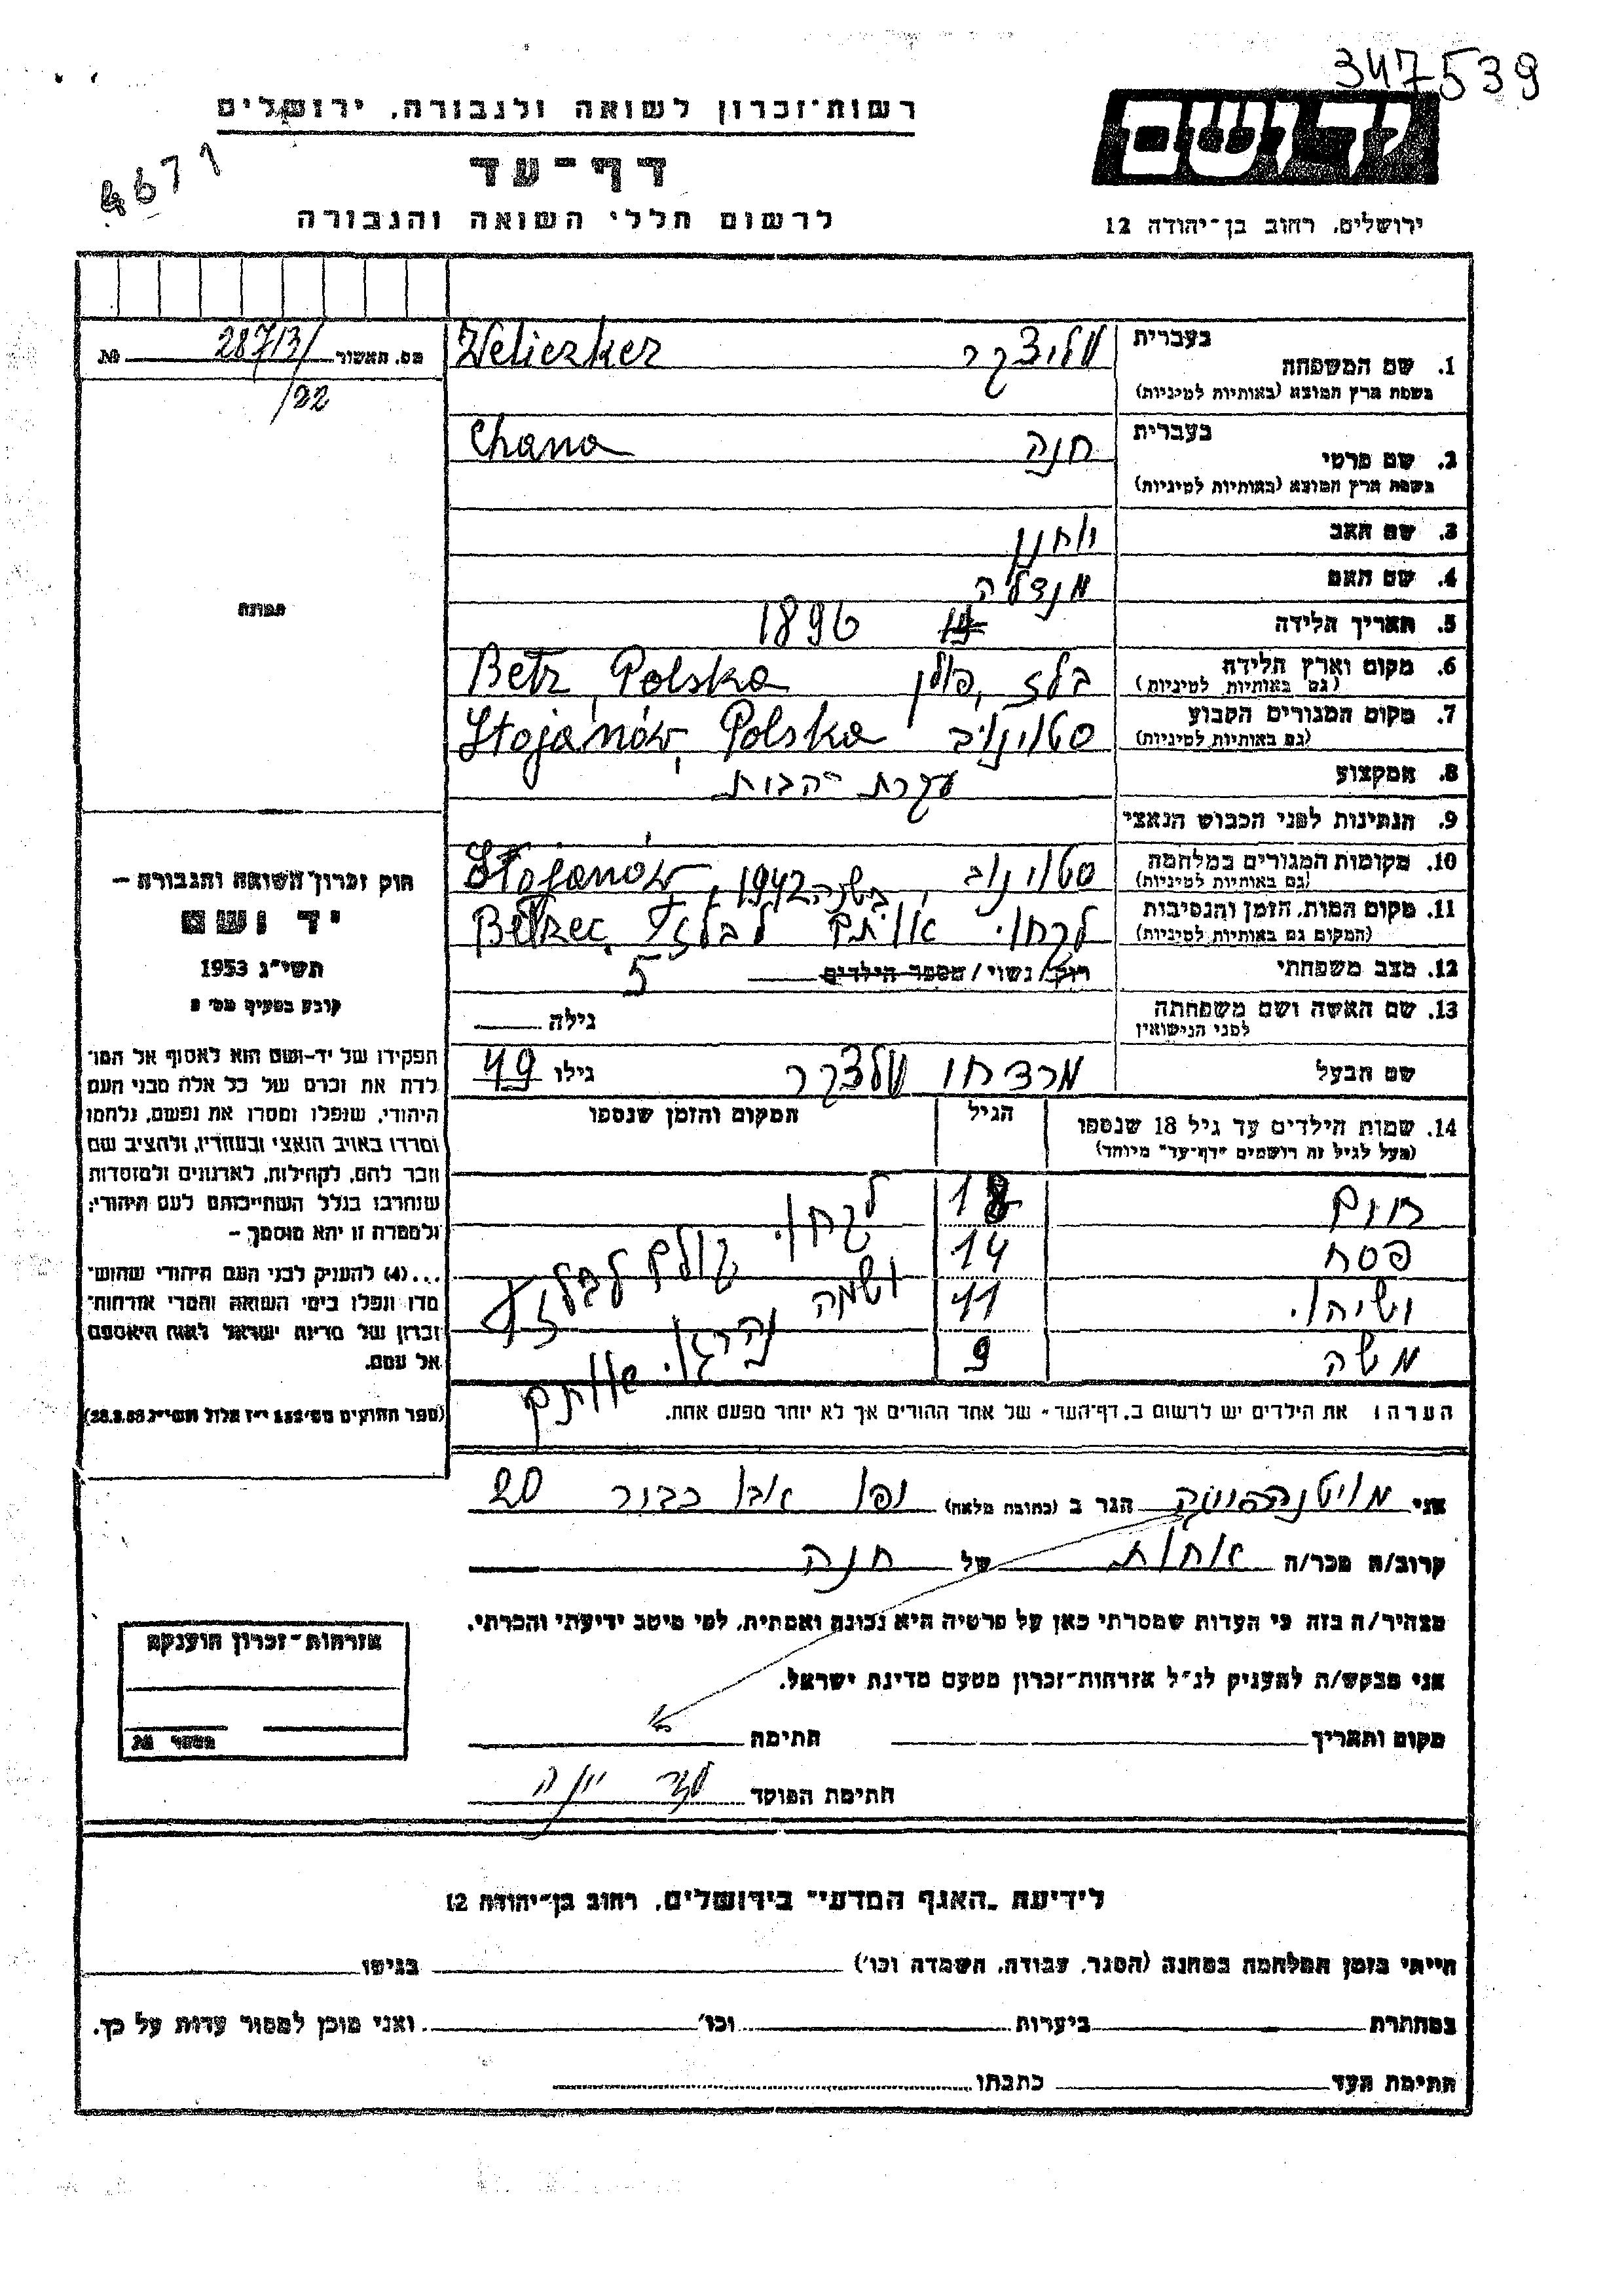 347539
4671
רשות־זכרון לשואה ולגבורה, ירושלים
דף־עד
לרשום חללי השואה והגבורה
יד ושם
ירושלים, רחוב בן־יהודה 12
מס. האשור 28713/ №
/22
תמונה
בעברית
1. שם המשפחה
בשפת ארץ המוצא (באותיות לטיניות)
Weliczker
בעברית
2. שם פרטי
בשפת ארץ המוצא (באותיות לטיניות)
חנה Chana
3. שם האב
4. שם האם
5. תאריך הלידה 1896
6. מקום וארץ הלידה
(גם באותיות לטיניות)
בלז, פולין Bełz, Polska
7. מקום המגורים הקבוע
(גם באותיות לטיניות)
סטוינוב Stojanów, Polska
8. המקצוע
עקרת הבית
9. הנתינות לפני הכבוש הנאצי
10. מקומות המגורים במלחמה
(גם באותיות לטיניות)
סטוינוב, Stojanów
11. מקום המות, הזמן והנסיבות
(המקום גם באותיות לטיניות)
בשנה 1942,
לקחו אותם לבלז'ץ Bełżec
12. מצב משפחתי
רוק/נשוי/מספר הילדים 5
13. שם האשה ושם משפחתה
לפני הנישואין
גילה
שם הבעל
מרדכי גילו 49
14. שמות הילדים עד גיל 18 שנספו
(מעל לגיל זה רושמים "דף־עד" מיוחד)
הגיל
המקום והזמן שנספו
חיים 18
פסח 14
11
משה 9
לקחו כולם לבלז'ץ
ושמה הרגו אותם
הערה: את הילדים יש לרשום ב„דף־העד" של אחד ההורים אך לא יותר מפעם אחת.
אני הגר ב (כתובת מלאה) יפו אבן כבור 20
קרוב/ה מכר/ה אחות של חנה
מצהיר/ה בזה כי העדות שמסרתי כאן על פרטיה היא נכונה ואמתית, לפי מיטב ידיעתי והכרתי.
אני מבקש/ת להעניק לנ"ל אזרחות־זכרון מטעם מדינת ישראל.
מקום ותאריך חתימה
חתימת הפוקד
חוק זכרון השואה והגבורה —
יד ושם
תשי"ג 1953
קובע בסעיף מס' 2
תפקידו של יד־ושם הוא לאסוף אל המו־
לדת את זכרם של כל אלה מבני העם
היהודי, שנפלו ומסרו את נפשם, נלחמו
ומרדו באויב הנאצי ובעוזריו, ולהציב שם
וזכר להם, לקהילות, לארגונים ולמוסדות
שנחרבו בגלל השתייכותם לעם היהודי;
ולמטרה זו יהא מוסמך, —
...(4) להעניק לבני העם היהודי שהוש־
מדו ונפלו בימי השואה והמרי אזרחות־
זכרון של מדינת ישראל לאות היאספם
אל עמם.
(ספר החוקים מס' 132 י"ז אלול תשי"ג 28.8.53)
אזרחות־זכרון הוענקה
מספר
לידיעת „האגף המדעי" בירושלים, רחוב בן־יהודה 12
הייתי בזמן המלחמה במחנה (הסגר, עבודה, השמדה וכו') בגיטו
במחתרת ביערות וכו' ואני מוכן למסור עדות על כך.
חתימת העד כתבתו